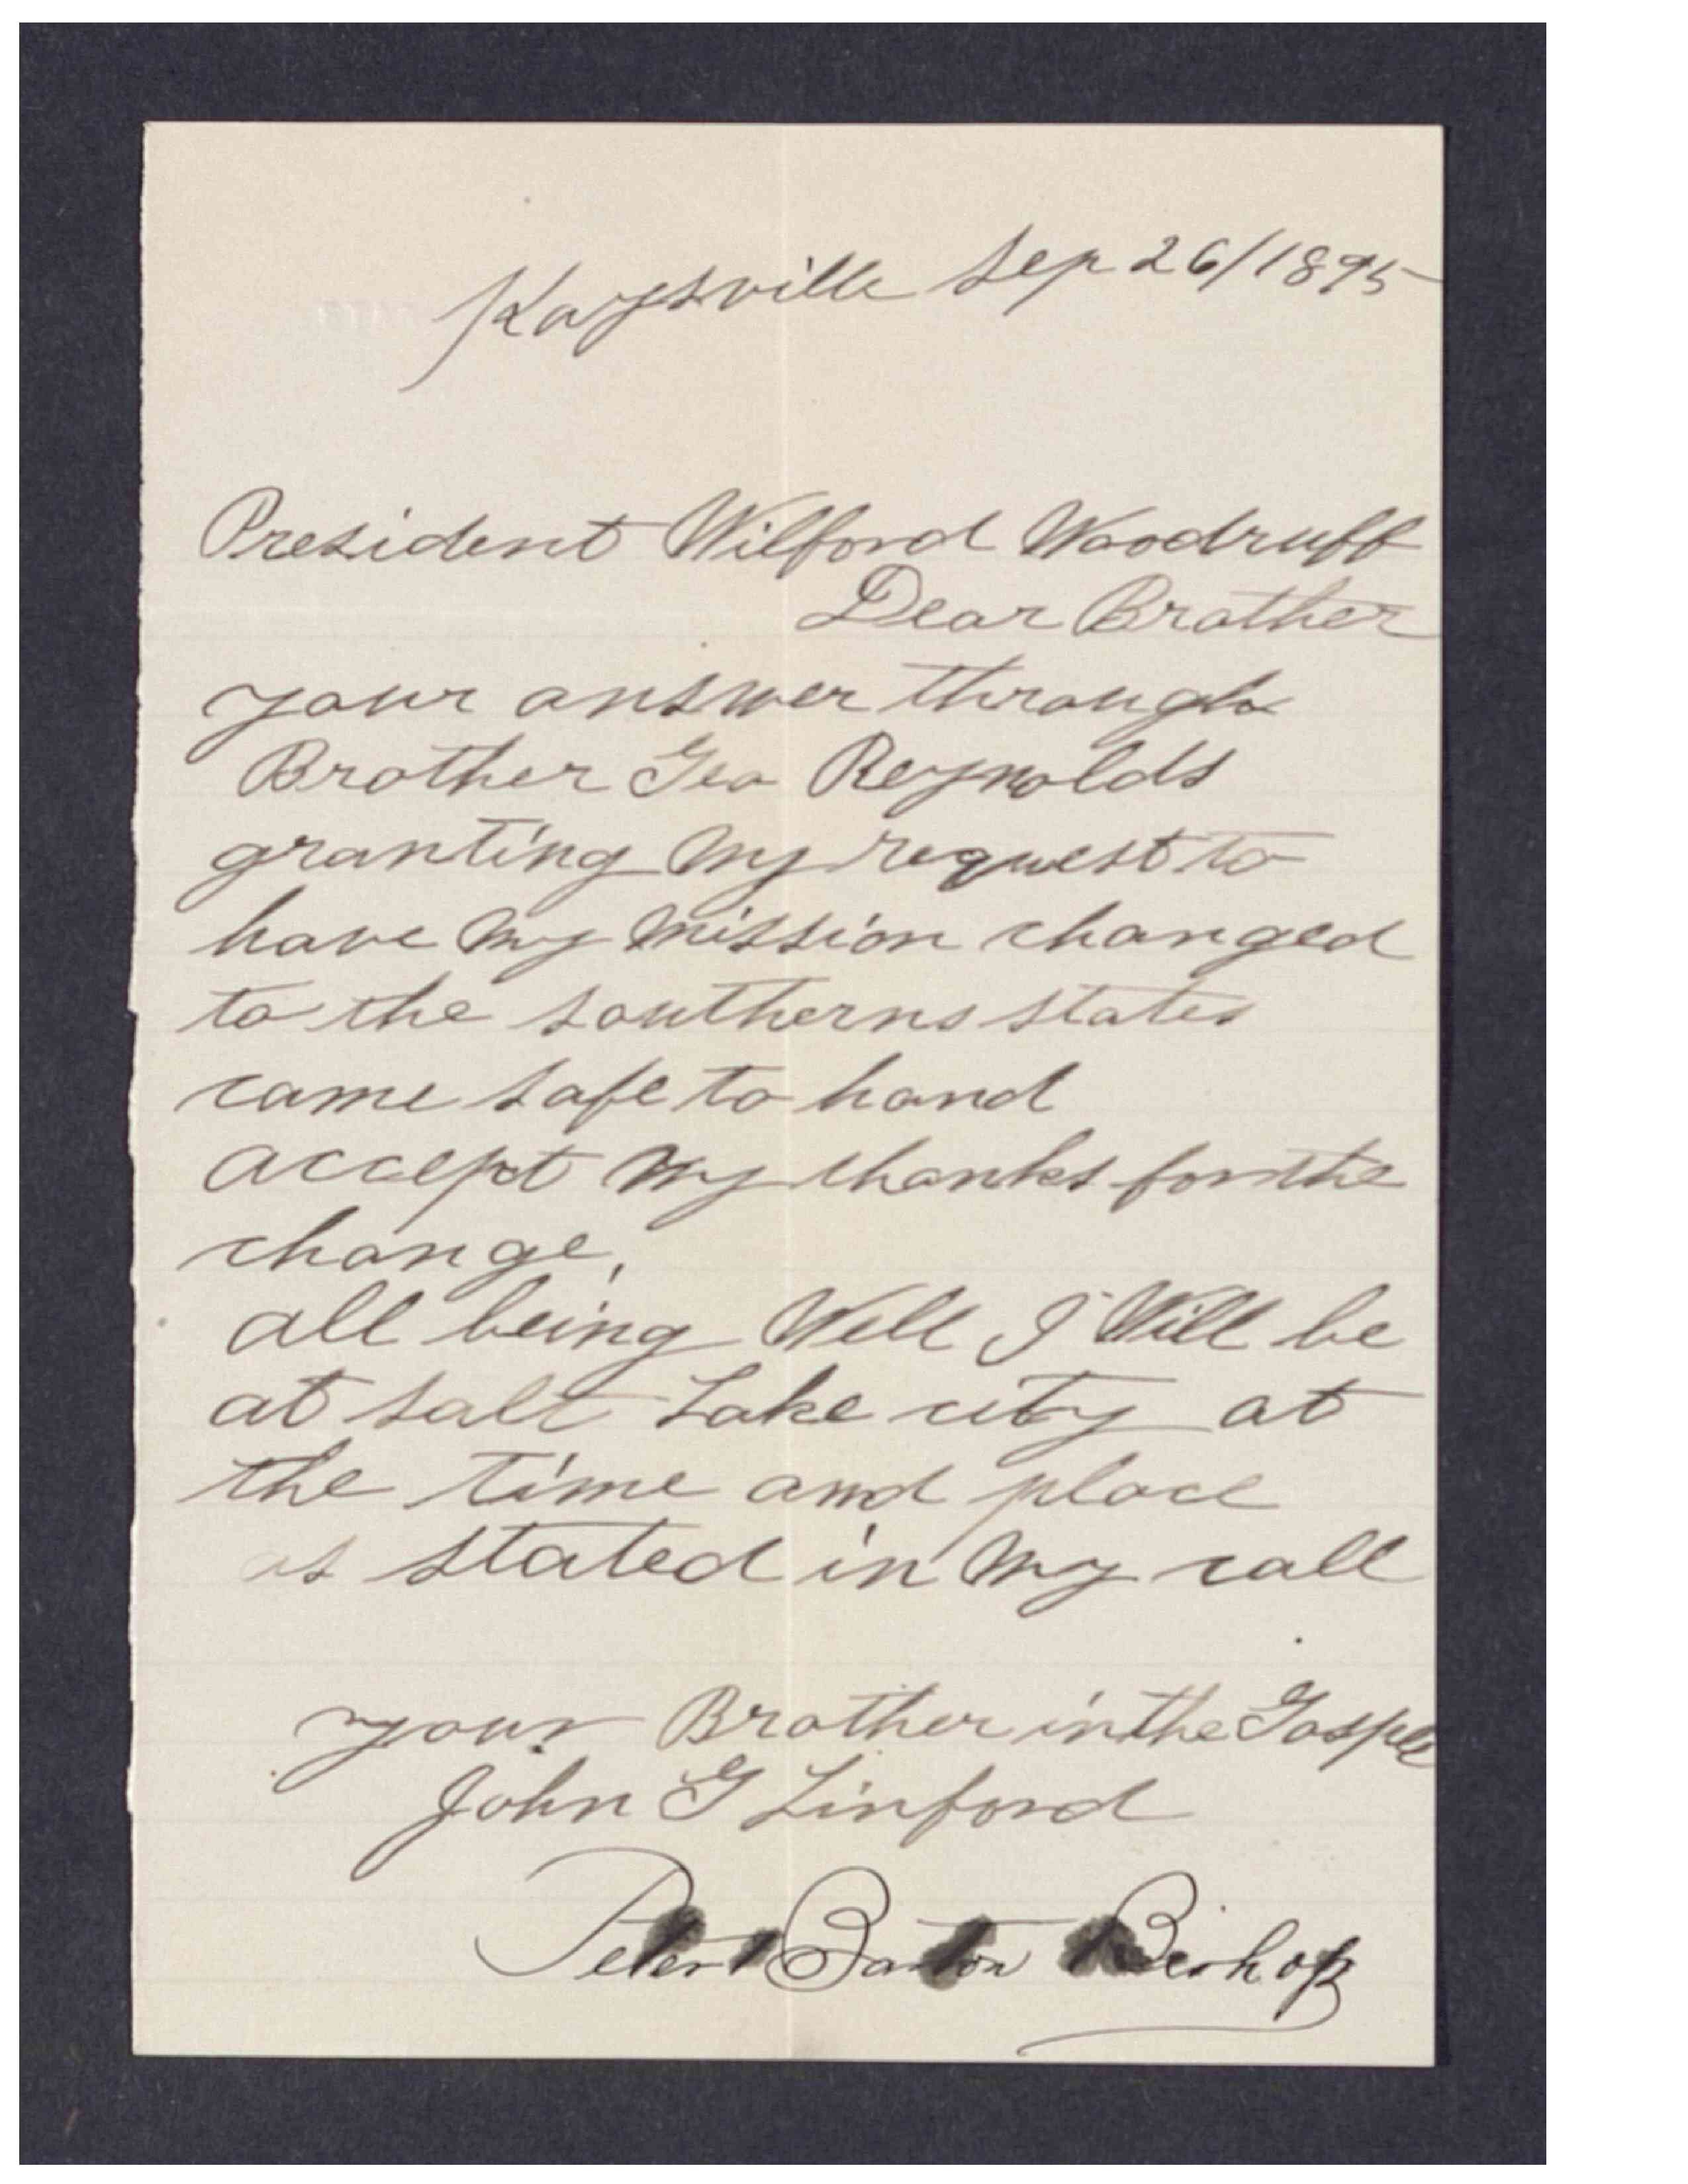 Kaysville Sep 26/1895
President Wilford Woodruff
Dear Brother
your answer through
Brother Geo Reynolds
granting my request to
have my mission changed
to the southerns states
came safe to hand
accept my thanks for the
change.
all being Well I Will be
at salt Lake city at
the time and place
as stated in my call
your Brother in the Gospel
John G Linford
Peter Barton Bishop